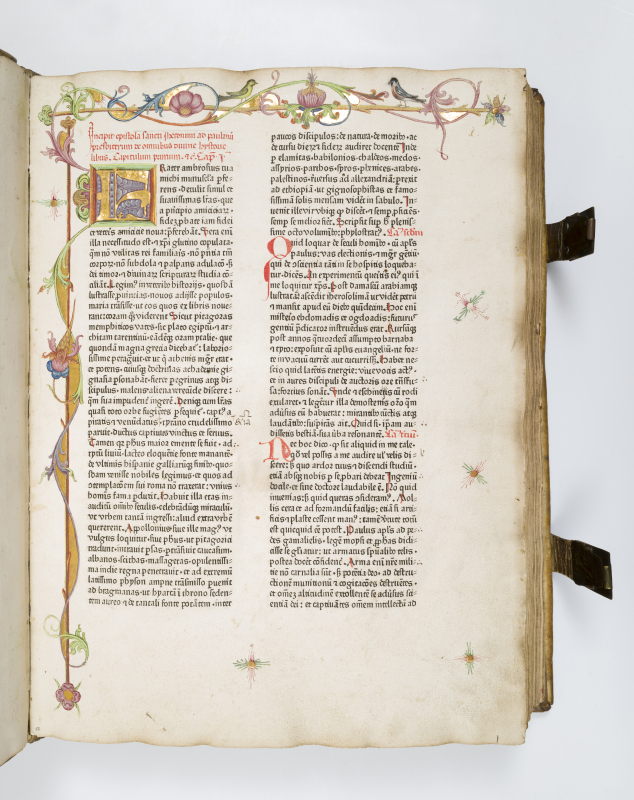 Incipit epistola sancti iheronimi ad paulinū
presbiterum de omnibus diuine hystorie
libris. Capitulum primum.
Rater ambrosius tua
michi munuscula pfe-
rens · detulit simul et
suauissimas lr̄as · que
a pricipio amicicia
fidē · phate iam fidei
et veteris amicicie noua · pferebāt. Vera eni
illa necessitudo est · xpi glutino copulata ·
qm nō vtilitas rei familiaris · nō pntia tm̄
corporz · nō subdola et palpans adulacō · sz
dei timor · et diuinarz scripturarz studia cō-
ciliāt. Legim⁹ in veterib⁹ historijs · quosdā
lustrasse puincias · nouos adijsse populos ·
maria trāsisse · ut eos quos ex libris noue-
rant: coram qz viderent. Sicut pitagoras
memphiticos vates · sic plato egiptū · et ar-
chitam tarentinū · eandēqz oram ytalie · que
quondā magna grecia dicebat͛: laborio-
sissime peragrauit · et ut qui athenis mgr̄ erat ·
et potens · cuiusqz doctrinas achademie gi-
gnasia psonabāt · fieret peregrinus atqz di-
scipulus · malens aliena verecūde discere:
qm̄ sua impudent̄ ingerē. Deniqz cum lr̄as
quasi toto orbe fugientes pseqt͛ · capt⁹ a
piratis et venūdatus · tyranno crudelissimo
paruit · ductus captiuus vinctus et seruus.
Tamen qz phus maior emente se fuit · ad
tytū liuiū · lacteo eloquētie fonte manantē ·
de vltimis hispanie galliarūqz finib⁹ · quos-
dam venisse nobiles legimus · et quos ad
contemplacōem sui roma nō traxerat: vnius
hominis fama pduxit. Habuit illa etas in-
auditū omib⁹ seculis · celebrādūqz miraculū ·
ut vrbem tantā ingressi: aliud extra vrbē
quererent. Appollonius siue ille mag⁹ ut
vulgus loquitur · siue phus · ut pitagorici
tradunt · intrauit psas · ptrāsiuit caucasum ·
albanos · scithas · massagetas · opulentissi-
ma indie regna penetrauit · et ad extremū
latissimo physon ampne trāsmisso puenit
ad bragmanas · ut hyarcā in throno seden-
tem aureo · et de tantali fonte potantem · inter
paucos discipulos: de natura · de moribz · ac
de cursu dierz et siderz audiret docentē. Inde
p elamitas · babilonios · chaldeos · medos ·
assyrios · parthos · syros · phenices · arabes ·
palestinos · reuersus ad allexandriā: prexit
ad ethiopiā · ut gignosophistas et famo-
sissimā solis mensam videret in sabulo. In-
uenit ille vir vbiqz qd disceret · et semp pficiēs ·
semp se melior fieret. Scripsit sup hoc plenis-
sime octo volumib⁹: phylostrat⁹.
Quid loquar de seculi hominib⁹ · cū apls
paulus: vas electionis · et mgr̄ gentiū ·
qui de cōsciencia tanti in se hospitis loqueba-
tur · dicēs. An experimentū queritis ei⁹ qui in
me loquitur xps. Post damascū arabiāqz
lustratā: ascēdit iherosolimā ut videret petrū
et mansit apud eū diebz quindecim. Hoc eni
misterio ebdomadis et ogdoadis: futurus
gentiū pdicator instruendus erat. Rursūqz
post annos quatuordecī assumpto barnaba
et tyto: exposuit cū aplis euangeliū · ne for-
te in vacuū curreret aut cucurrisset. Habet ne-
scio quid latētis energie: viue vocis act⁹ ·
et in aures discipuli de auctoris ore trāsfu-
sa: fortius sonat. Vnde et eschineus cū rodi
exularet · et legeretur illa demostenis oratō qm
aduersus eū habuerat: mirantib⁹ cūctis atqz
laudātib⁹: suspirās ait. Quid si ipam au-
dissetis bestiā: sua verba resonantē.
Nec hoc dico · qz sit aliquid in me tale ·
qd vel possis a me audire vel velis di-
scere: sz quo ardor tuus et discendi studiū ·
etiā absqz nobis p se pbari debeat. Ingeniū
docile · et sine doctore laudabile ē. Nō quid
inuenias: sz quid queras cōsideram⁹. Mol-
lis cera et ad formandū facilis: etiā si arti-
ficis et plaste cessent man⁹: tamē virtute totū
est quicquid eē potest. Paulus apls ad pe-
des gamalielis · legē moysi et pphas didi-
cisse se gliatur: ut armatus spualib⁹ telis ·
postea doceret cōfident̄. Arma eni nr̄e mili-
tie nō carnalia sūt · sz potētia deo · ad destru-
ctionē munitionū et cogitacōes destruētes ·
et omēz altitudinē extollentē se aduersus sci-
entiā dei: et captiuātes omēm intellectū ad